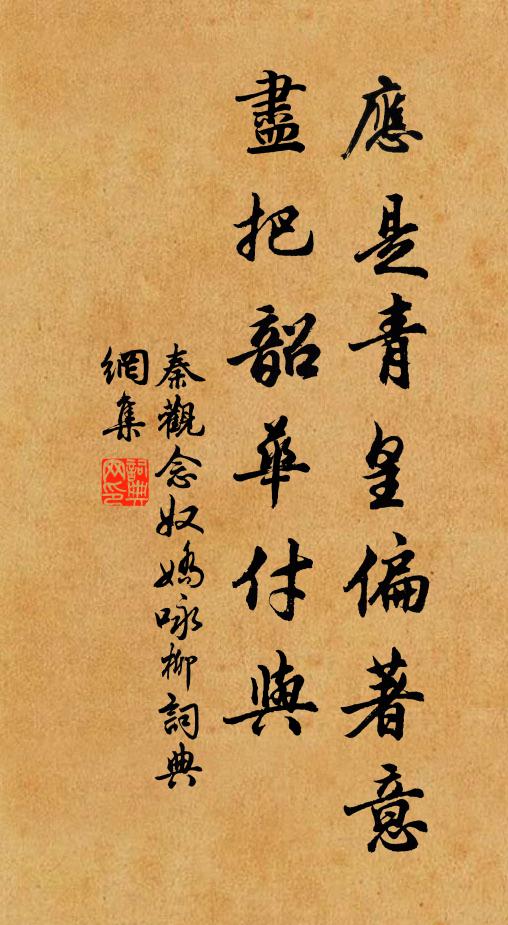 應是青皇偏著意
盡把韶華付與
秦觀念奴嬌咏柳詞典
網集
詞典
网印